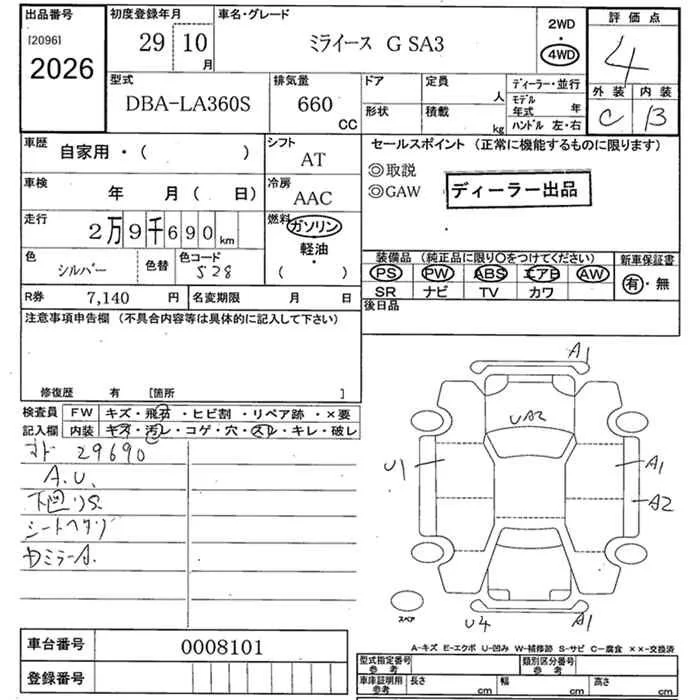 出品番号
[2096]
2026
初度登録年月
29 10
月
車名・グレード
ミライース G SA3
2WD
4WD
評価点
4
外装 内装
C B
型式
DBA-LA360S
排気量
660
CC
ドア 定員
人
形状 積載
kg
ディーラー・並行
モデル
年式 年
ハンドル 左・右
車歴
自家用・( )
シフト
AT
車検
年 月( 日)
冷房
AAC
走行
2万9千690km
燃料
ガソリン
軽油・
( )
色
シルバー
色替
色コード
S28
R券 7,140 円
名変期限 月 日
セールスポイント (正常に機能するものに限ります)
◎取説
◎GAW
ディーラー出品
装備品 (純正品に限り〇をつけてください)
PS PW ABS エアB AW
SR ナビ TV カワ
新車保証書
有・無
後日品
注意事項申告欄 (不具合内容等は具体的に記入して下さい)
修復歴 有 [箇所 ]
検査員
記入欄
FW キズ・飛石・ヒビ割・リペア跡・×要
内装 キズ・汚レ・コゲ・穴・スレ・キレ・破レ
29690
A.U.
下回りS
シートヘタリ
A1
UA2
U1
A1
A2
U4
A1
スペア
A-キズ E-エクボ U-凹み W-補修跡 S-サビ C-腐食 ××-交換済
車台番号 0008101
登録番号
型式指定番号
参考
類別区分番号
参考
車庫証明用
参考
長さ cm 幅 cm 高さ cm